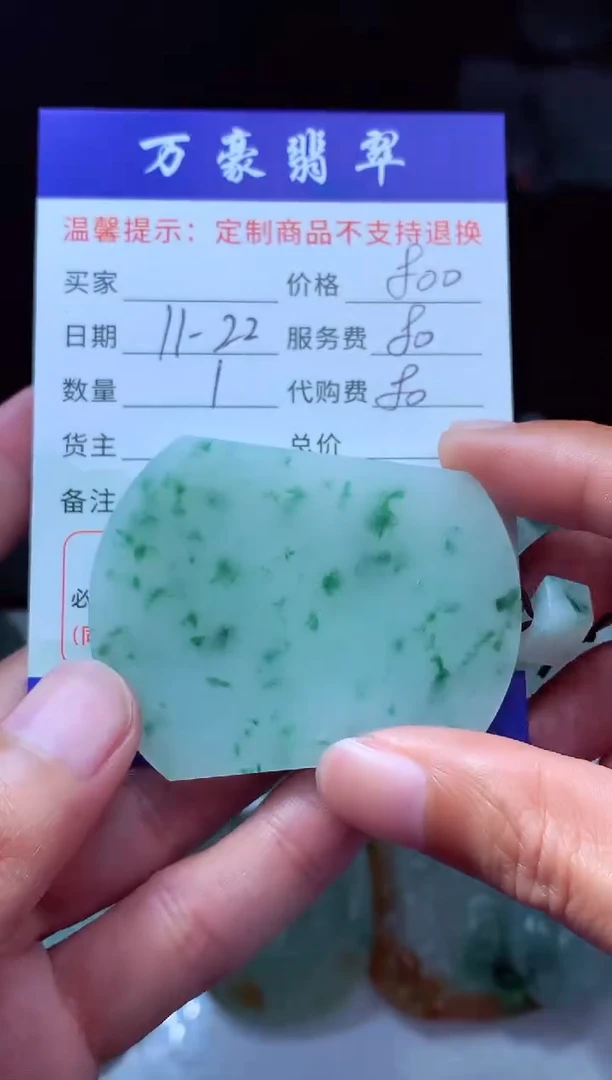 万豪翡翠
温馨提示：定制商品不支持退换
买家 价格 800
日期 11-22 服务费 80
数量 1 代购费 80
货主 总价
备注
必
(同